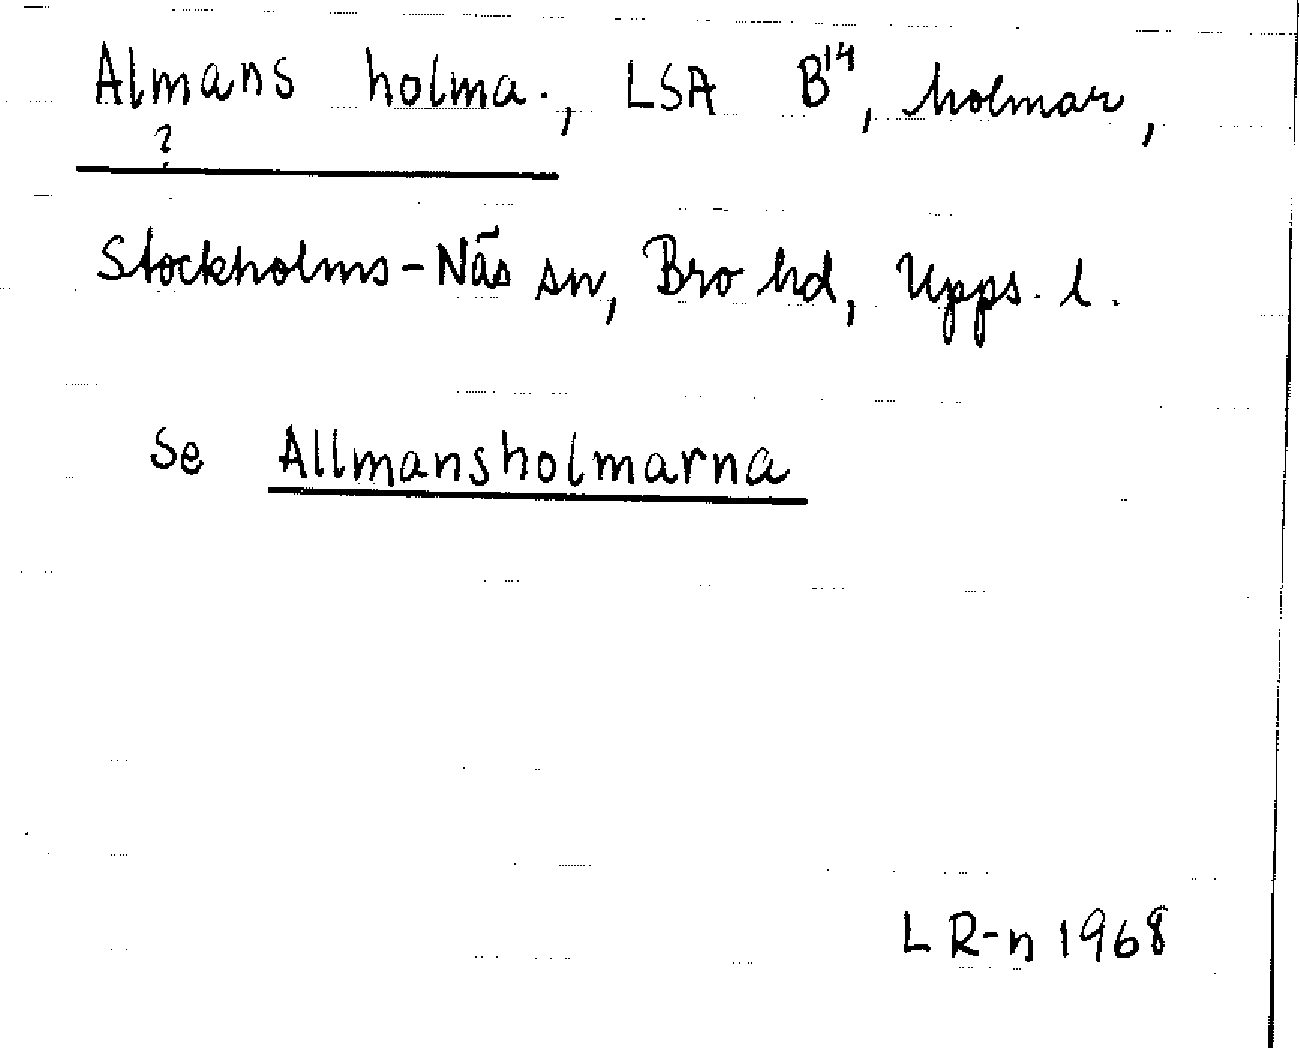 Almans holma., LSA B¹⁴, holmar,
?
Stockholms-Näs sn, Bro hd, Upps. l.
Se Allmansholmarna
LR-n 1968